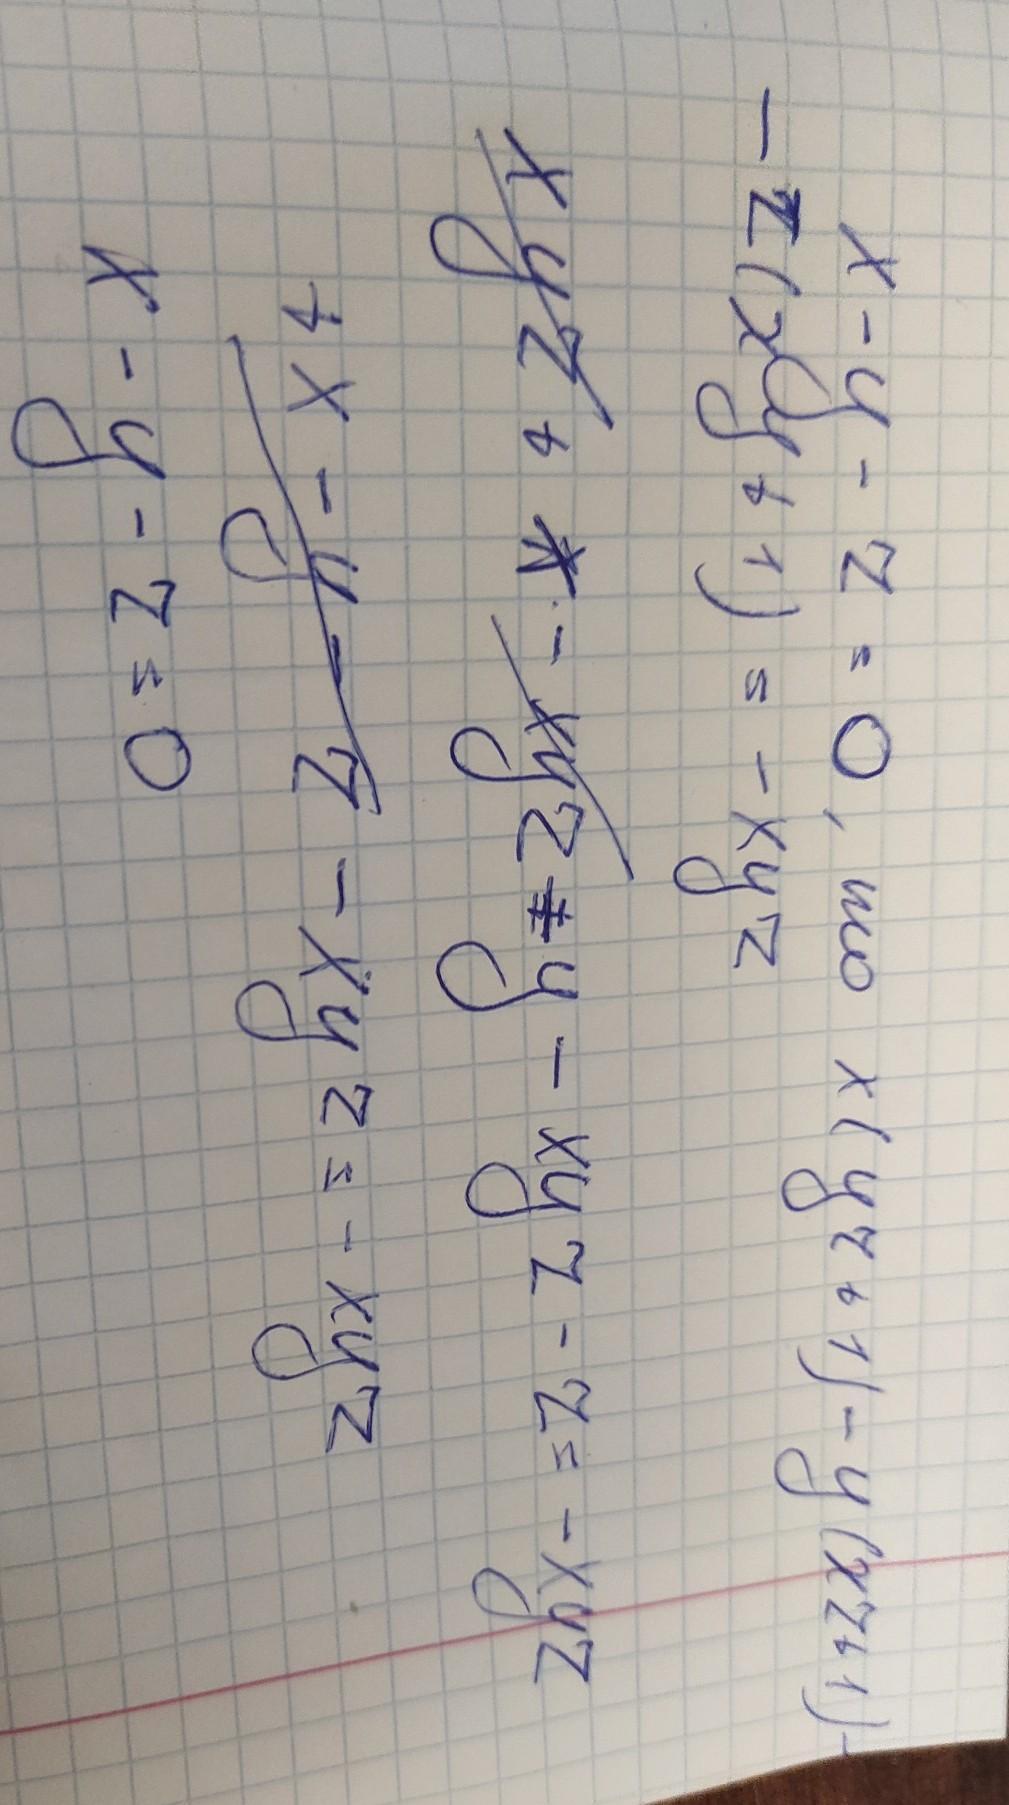 x - y - z = 0, то x(yz+1) - y(xz+1) -
- z(xy + 1) = - xyz
xyz + x - xyz - y - xyz - z = - xyz
+ x - y - z - xyz = - xyz
x - y - z = 0